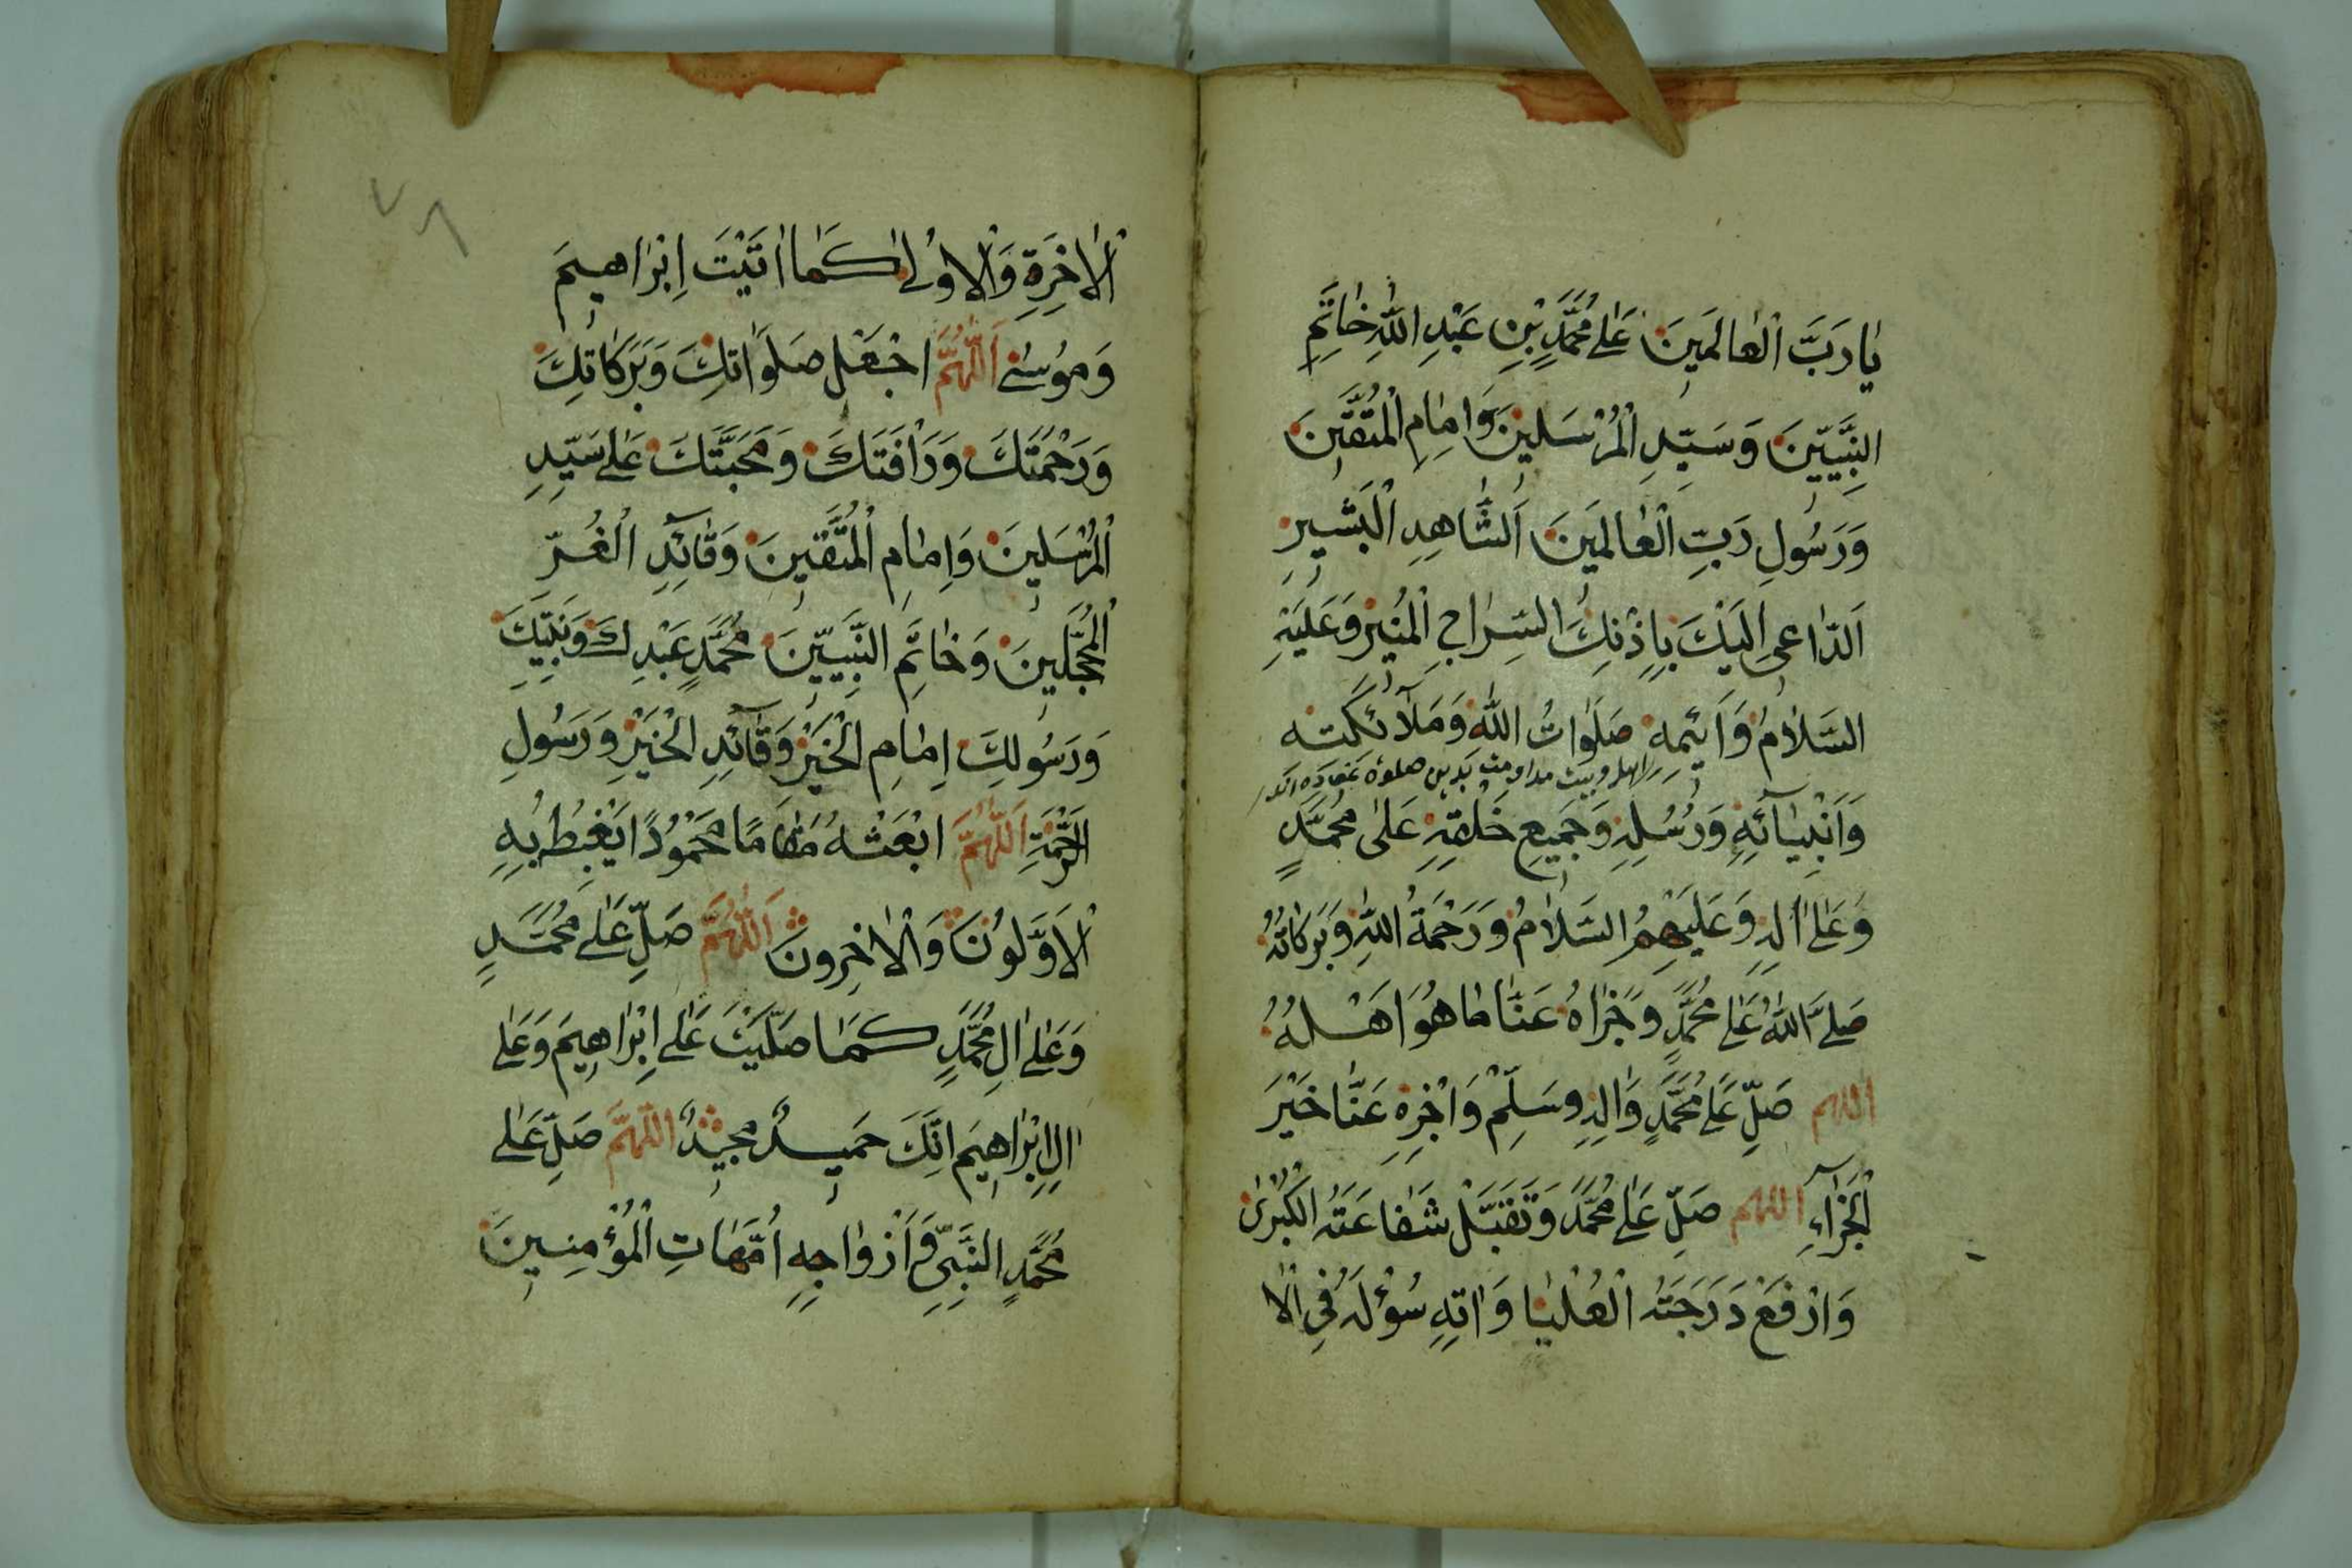 يَا رَبَّ الْعَالَمِينَ عَلَى مُحَمَّدِ بْنِ عَبْدِ اللّٰهِ خَاتَمِ
النَّبِيِّينَ وَسَيِّدِ الْمُرْسَلِينَ وَاِمَامِ الْمُتَّقِينَ
وَرَسُولِ رَبِّ الْعَالَمِينَ اَلشَّاهِدِ الْبَشِيرِ
اَلدَّاعِى اِلَيْكَ بِاِذْنِكَ السِّرَاجِ الْمُنِيرِ وَعَلَيْهِ
السَّلَامُ صَلَوَاتُ اللّٰهِ وَمَلَآئِكَتِهِ
وَاَنْبِيَآئِهِ وَرُسُلِهِ وَجَمِيعِ خَلْقِهِ عَلَى مُحَمَّدٍ
وَعَلَى اٰلِهِ وَعَلَيْهِمُ السَّلَامُ وَرَحْمَةُ اللّٰهِ وَبَرَكَاتُهُ
صَلَّى اللّٰهُ عَلَى مُحَمَّدٍ وَجَزَاهُ عَنَّا مَا هُوَ اَهْلُهُ
اللهم صَلِّ عَلَى مُحَمَّدٍ وَاٰلِهِ وَسَلِّمْ وَاجْزِهِ عَنَّا خَيْرَ
الْجَزَآءِ اللهم صَلِّ عَلَى مُحَمَّدٍ وَتَقَبَّلْ شَفَاعَتَهُ الْكُبْرٰى
وَارْفَعْ دَرَجَتَهُ الْعُلْيَا وَاٰتِهِ سُؤْلَهُ فِى الْا
٧٨
الْاٰخِرَةِ وَالْاُولٰى كَمَا اٰتَيْتَ اِبْرَاهِيمَ
وَمُوسٰى اَللّٰهُمَّ اجْعَل صَلَوَاتِكَ وَبَرَكَاتِكَ
وَرَحْمَتَكَ وَرَاْفَتَكَ وَمَحَبَّتَكَ عَلَى سَيِّدِ
الْمُرْسَلِينَ وَاِمَامِ الْمُتَّقِينَ وَقَآئِدِ الْغُرِّ
الْمُحَجَّلِينَ وَخَاتَمِ النَّبِيِّينَ مُحَمَّدٍ عَبْدِكَ وَنَبِيِّكَ
وَرَسُولِكَ اِمَامِ الْخَيْرِ وَقَآئِدِ الْخَيْرِ وَرَسُولِ
الرَّحْمَةِ اَللّٰهُمَّ ابْعَثْهُ مَقَامًا مَحْمُودًا يَغْبِطُ بِهِ
الْاَوَّلُونَ وَالْاٰخِرُونَ اَللّٰهُمَّ صَلِّ عَلَى مُحَمَّدٍ
وَعَلَى اٰلِ مُحَمَّدٍ كَمَا صَلَّيْتَ عَلَى اِبْرَاهِيمَ وَعَلَى
اٰلِ اِبْرَاهِيمَ اِنَّكَ حَمِيدٌ مَجِيدٌ اَللّٰهُمَّ صَلِّ عَلَى
مُحَمَّدٍ النَّبِيِّ وَاَزْوَاجِهِ اُمَّهَاتِ الْمُؤْمِنِينَ